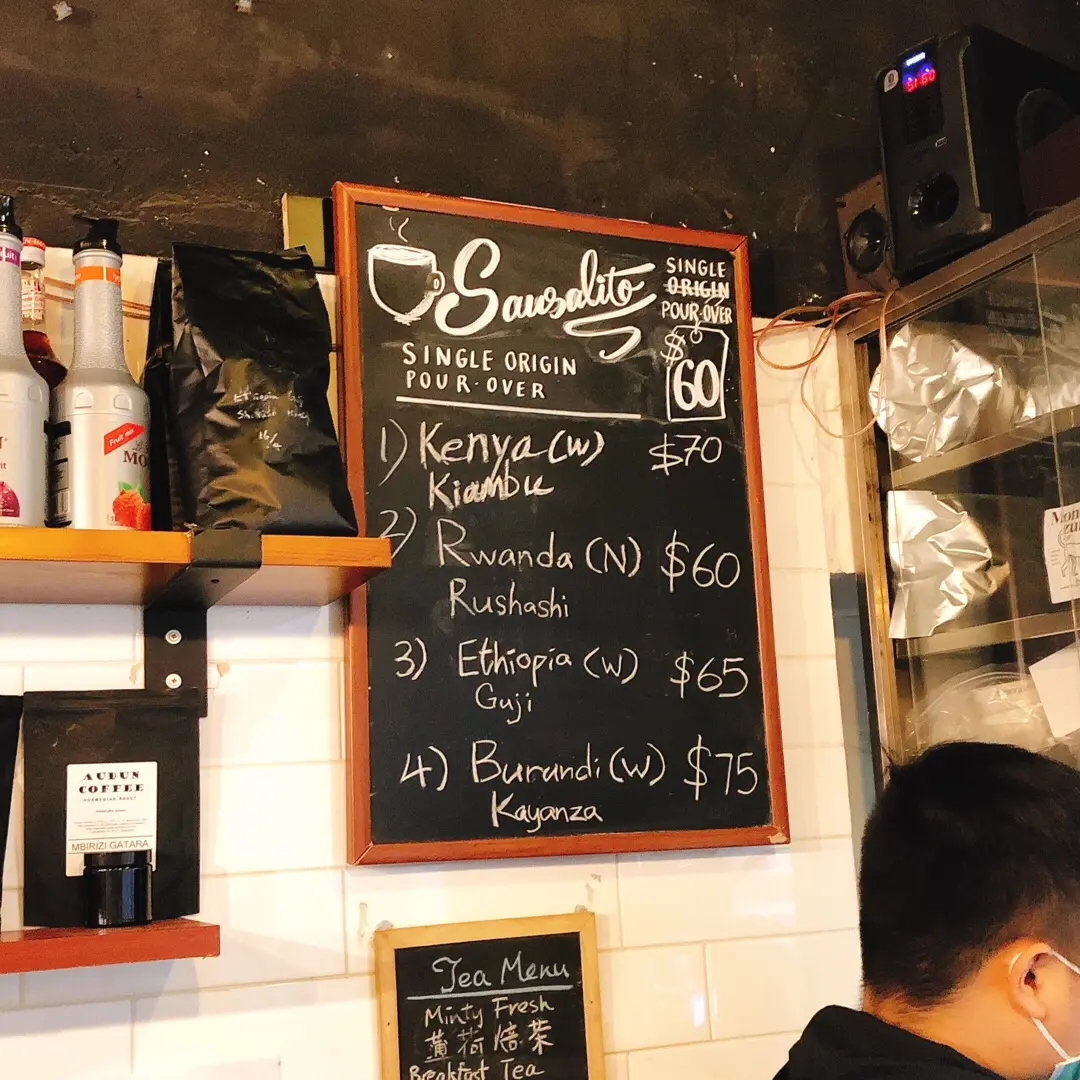 Sausalito
SINGLE ORIGIN
POUR-OVER
SINGLE
ORIGIN
POUR-OVER
$
60
1) Kenya (W) $70
Kiambu
2) Rwanda (N) $60
Rushashi
3) Ethiopia (W) $65
Guji
4) Burundi (W) $75
Kayanza
Tea Menu
Minty Fresh
薄荷焙茶
Breakfast Tea
AUDUN
COFFEE
MBIRIZI GATARA
Fruit mix
MO
Ethiopia
Mon